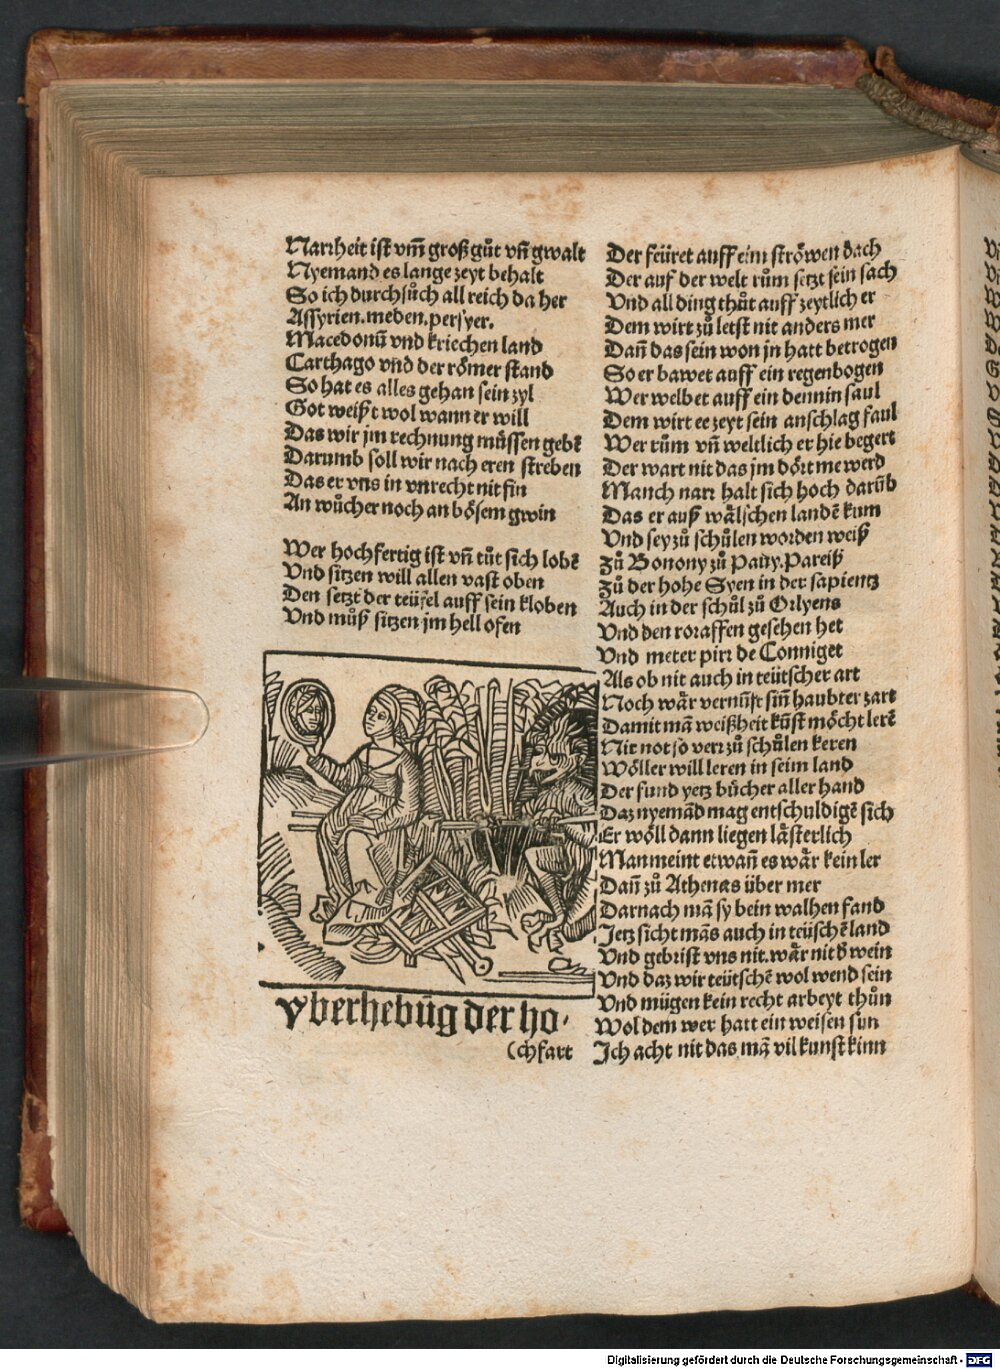 Narrheit ist vm̃ groß gůt vñ gwalt
Nyemand es lange zeyt behalt
So ich durchsůch all reich da her
Assyrien.meden.persyer.
Macedonũ vnd kriechen land
Carthago vnd der rŏmer stand
So hat es alles gehan sein zyl
Got weißt wol wann er will
Das wir jm rechnung müssen gebẽ
Darumb soll wir nach eren streben
Das er vns in vnrecht nit fin
An wůcher noch an bösem gwin
Wer hochfertig ist vñ tůt sich lobẽ
Vnd sitzen will allen vast oben
Den setzt der teüfel auff sein kloben
Vnd můß sitzen jm hell ofen
vberhebũg der ho-
(chfart
Der feüret auff eim ströwen dach
Der auf der welt rům setzt sein sach
Vnd all ding thůt auff zeytlich er
Dem wirt zů letst nit anders mer
Dañ das sein won jn hatt betrogen
So er bawet auff ein regenbogen
Wer welbet auff ein dennin saul
Dem wirt ee zeyt sein anschlag faul
Wer rům vñ weltlich er hie begert
Der wart nit das jm dört me werd
Manch narr halt sich hoch darũb
Das er auß wälschen landẽ kum
Vnd sey zů schůlen worden weiß
Zů Bonony zů Pauy.Pareiß
Zů der hohe Syen in der sapientz
Auch in der schůl zů Orlyens
Vnd den roraffen gesehen het
Vnd meter pirr de Conniget
Als ob nit auch in teütscher art
Noch wär vernũft siñ haubter zart
Damit mã weißheit kũst möcht lerẽ
Nit not so verr zů schůlen keren
Wöller will leren in seim land
Der fund yetz bücher aller hand
Daz nyemãd mag entschuldigẽ sich
Er wöll dann liegen lästerlich
Man meint etwañ es wär kein ler
Dañ zů Athenas über mer
Darnach mã sy bein walhen fand
Jetz sicht mãs auch in teüschẽ land
Vnd gebrist vns nit.wär nit ď wein
Vnd daz wir teütschẽ wol wend sein
Vnd mügen kein recht arbeyt thůn
Wol dem wer hatt ein weisen sun
Ich acht nit das mã vil kunst kinn
Digitalisierung gefördert durch die Deutsche Forschungsgemeinschaft - DFG